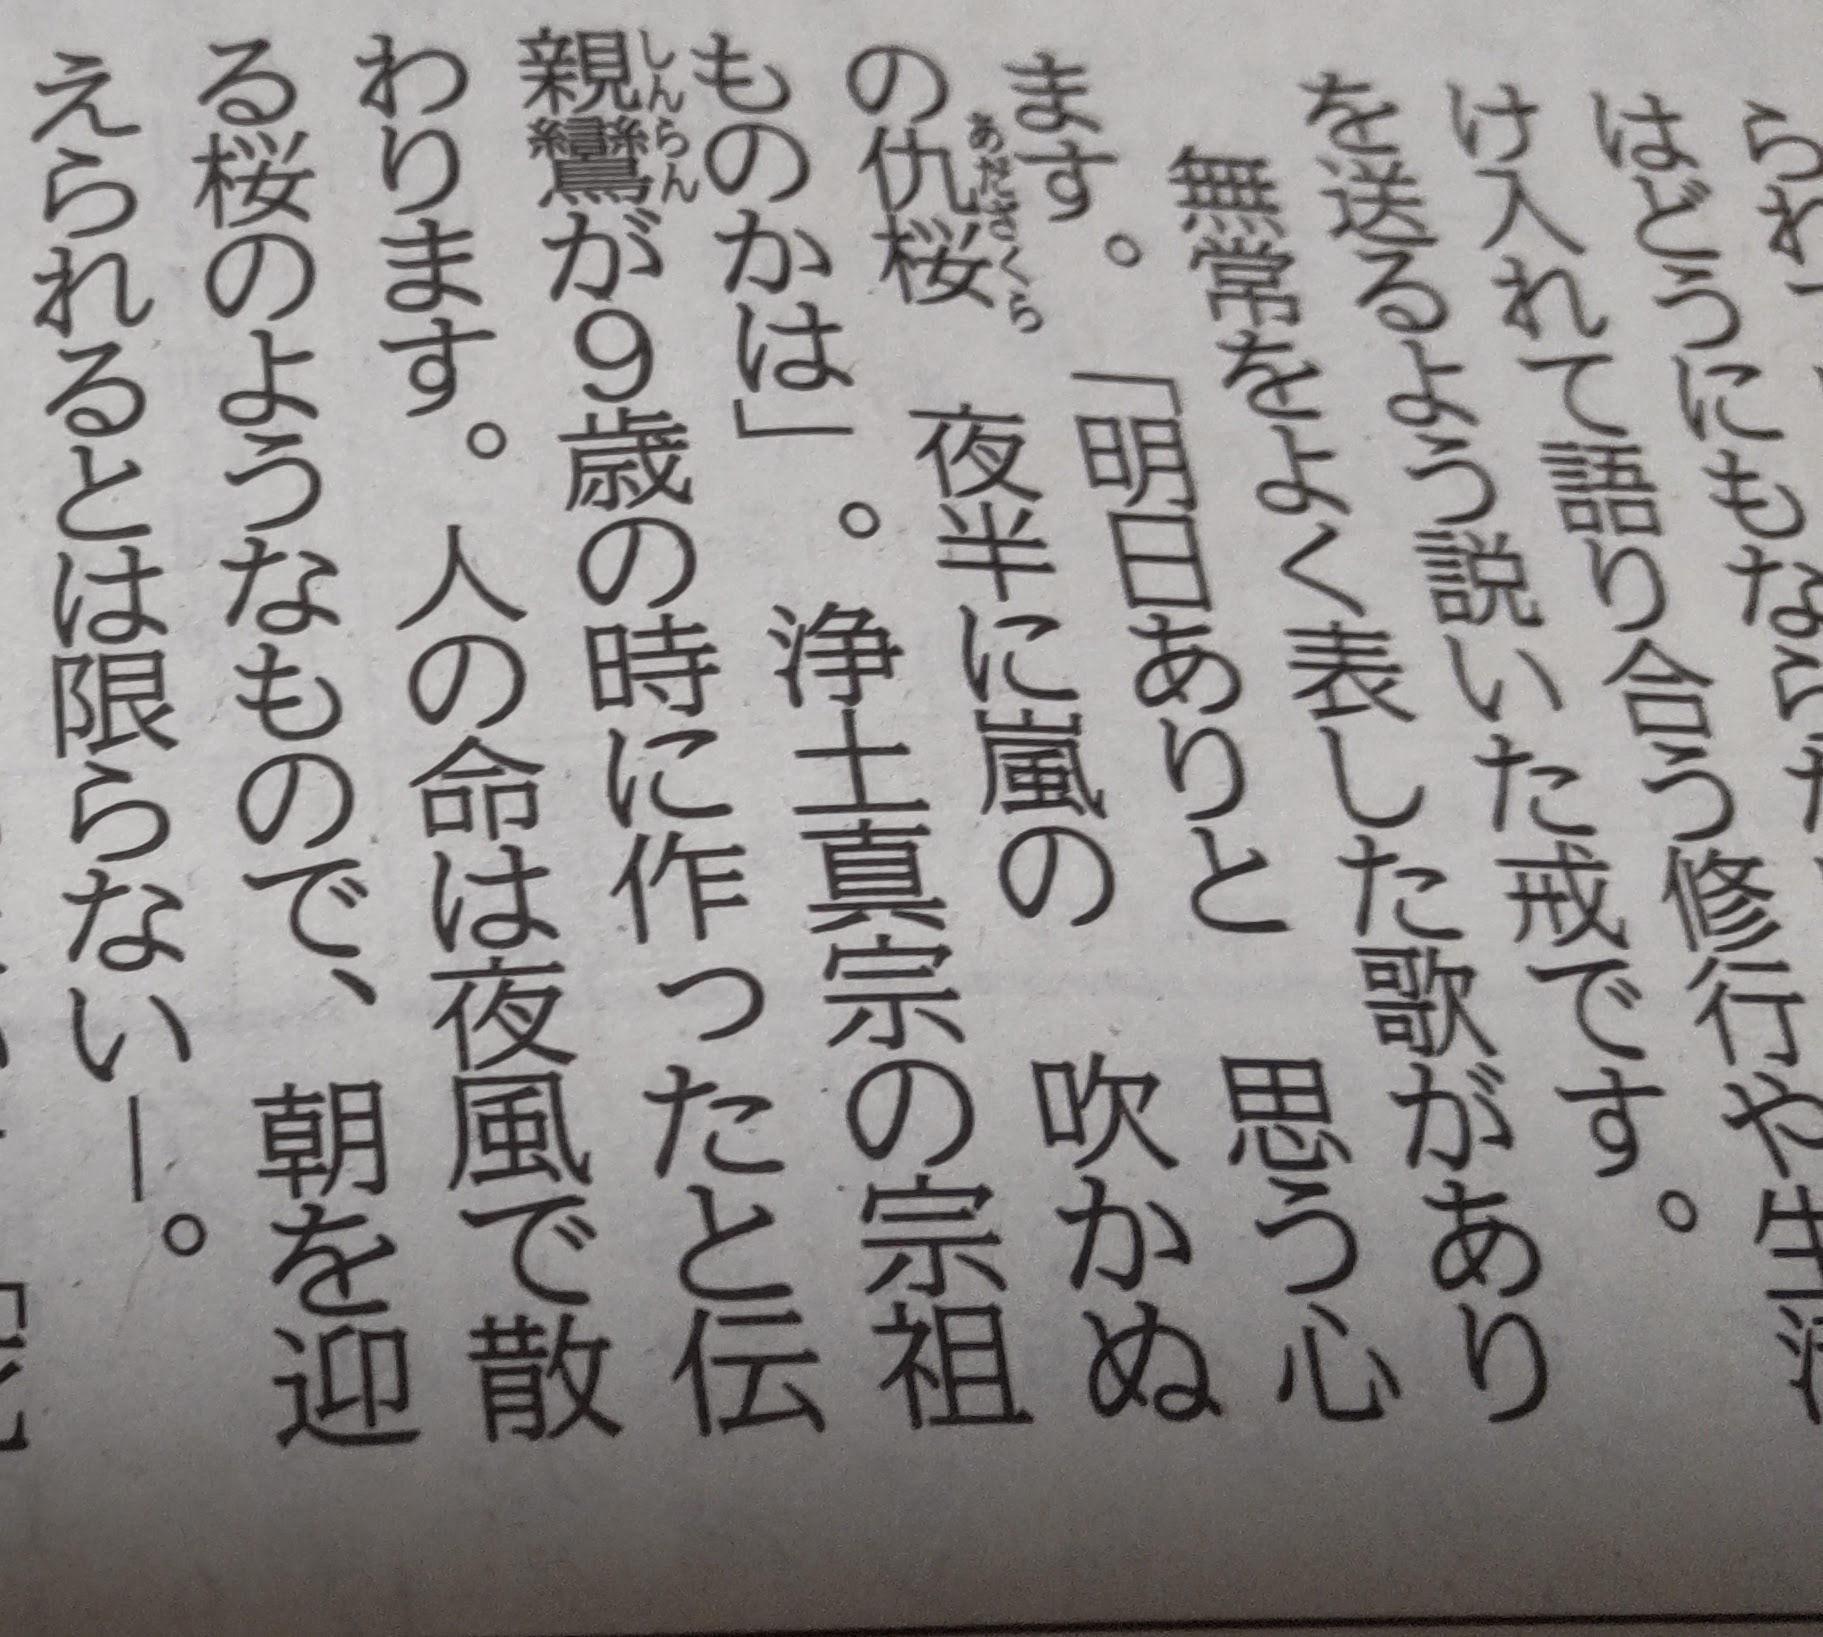 られ
はどうにもな
け入れて語り合う修行や生活
を送るよう説いた戒です。
無常をよく表した歌があり
ます。「明日ありと　思う心
の仇桜　夜半に嵐の　吹かぬ
ものかは」。浄土真宗の宗祖
親鸞が9歳の時に作ったと伝
わります。人の命は夜風で散
る桜のようなもので、朝を迎
えられるとは限らない―。